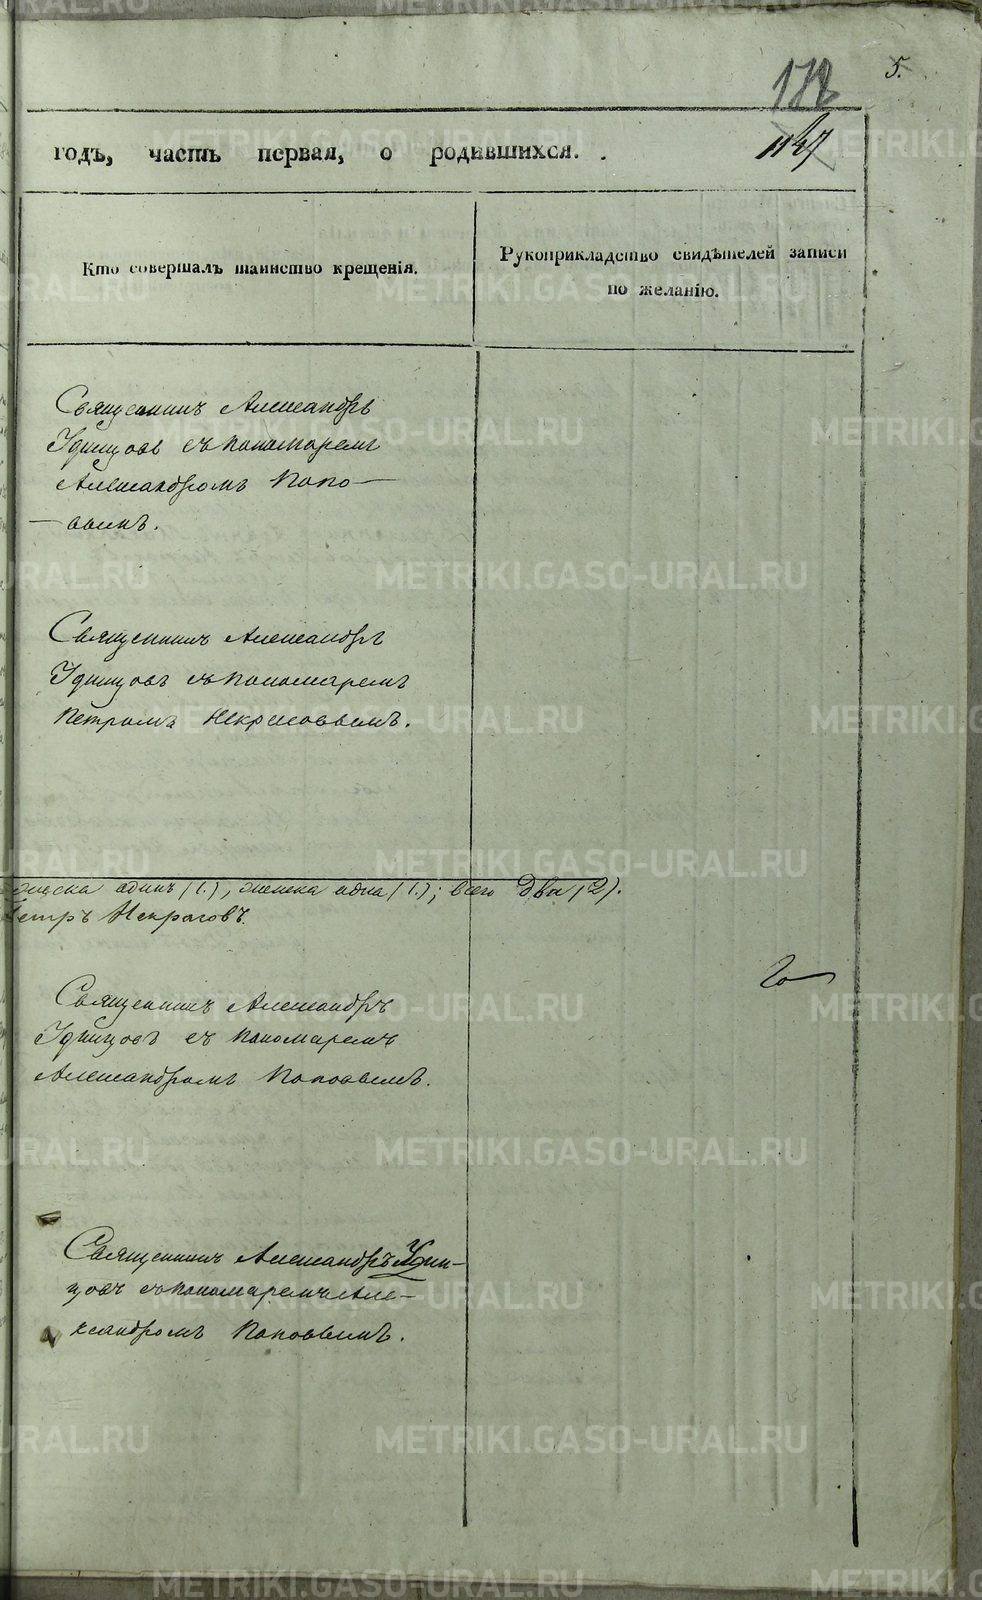 178
5.
1147
годъ, часть первая, о родившихся.
Кто совершалъ таинство крещенія.
Рукоприкладство свидѣтелей записи
по желанію.
Священникъ Александръ
Удинцовъ съ пономаремъ
Александромъ Попо-
-вымъ.
Священникъ Александръ
Удинцовъ съ пономаремъ
Петромъ Некрасовымъ.
мужеска одинъ (1.), женска одна (1.); всего два (2).
Петръ Некрасовъ.
Священникъ Александръ
Удинцовъ съ пономаремъ
Александромъ Поповымъ.
Священникъ Александръ Удин-
цовъ съ пономаремъ Але-
ксандромъ Поповымъ.
METRIKI.GASO-URAL.RU